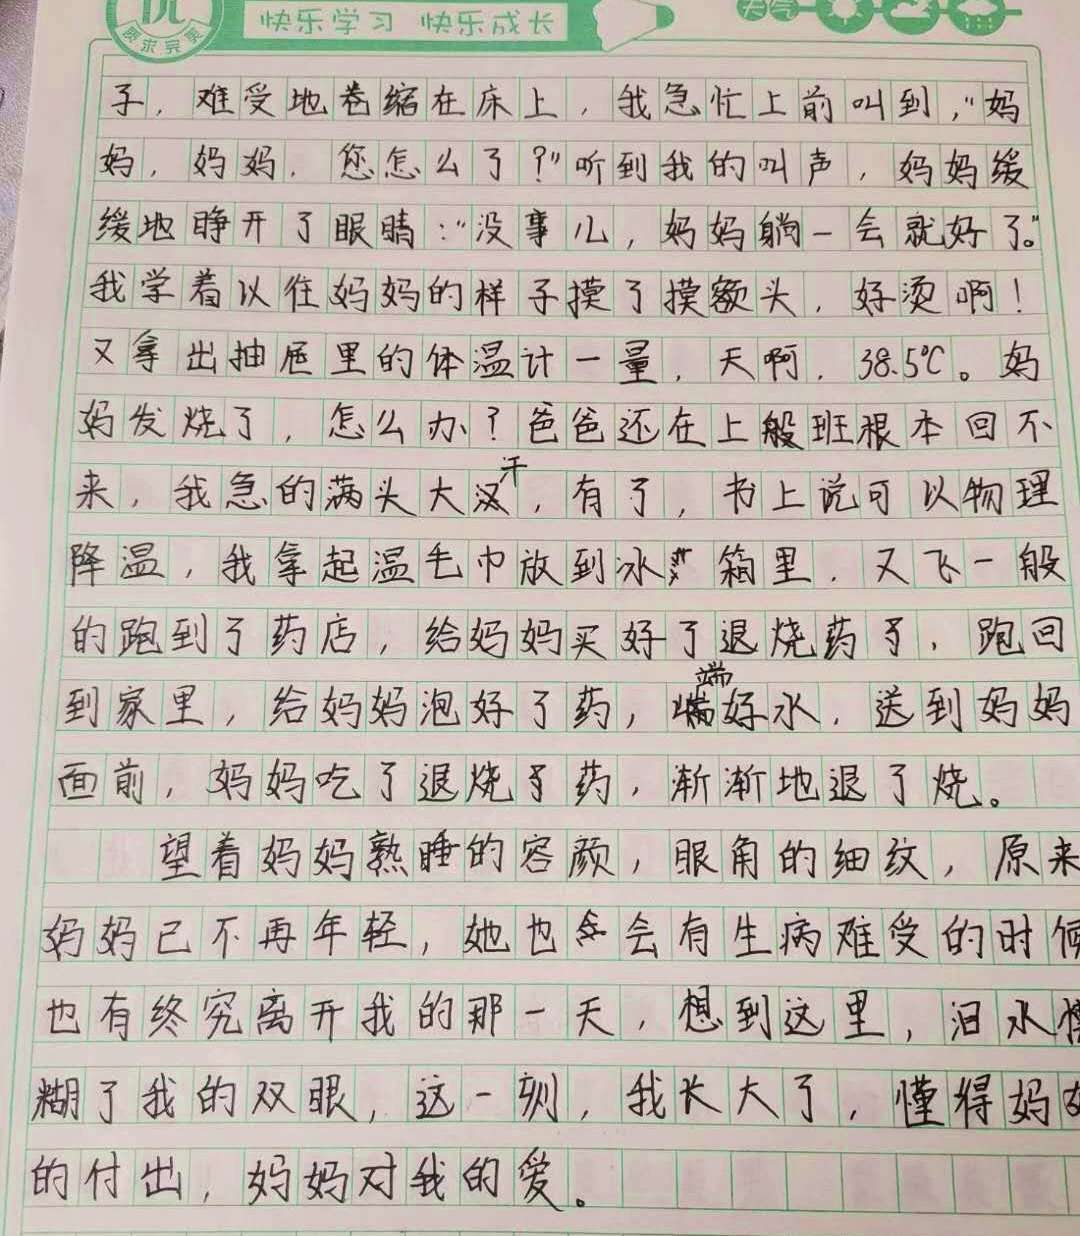 优
质求完美
快乐学习 快乐成长
天气
子，难受地卷缩在床上，我急忙上前叫到，“妈
妈，妈妈，您怎么了？”听到我的叫声，妈妈缓
缓地睁开了眼睛：“没事儿，妈妈躺一会就好了。”
我学着以往妈妈的样子摸了摸额头，好烫啊！
又拿出抽屉里的体温计一量，天啊，38.5℃。妈
妈发烧了，怎么办？爸爸还在上班根本回不
来，我急的满头大汗，有了，书上说可以物理
降温，我拿起温毛巾放到冰箱里，又飞一般
的跑到了药店，给妈妈买好了退烧药，跑回
到家里，给妈妈泡好了药，端好水，送到妈妈
面前，妈妈吃了退烧药，渐渐地退了烧。
望着妈妈熟睡的容颜，眼角的细纹，原来
妈妈已不再年轻，她也会有生病难受的时候
也有终究离开我的那一天，想到这里，泪水模
糊了我的双眼，这一刻，我长大了，懂得妈妈
的付出，妈妈对我的爱。